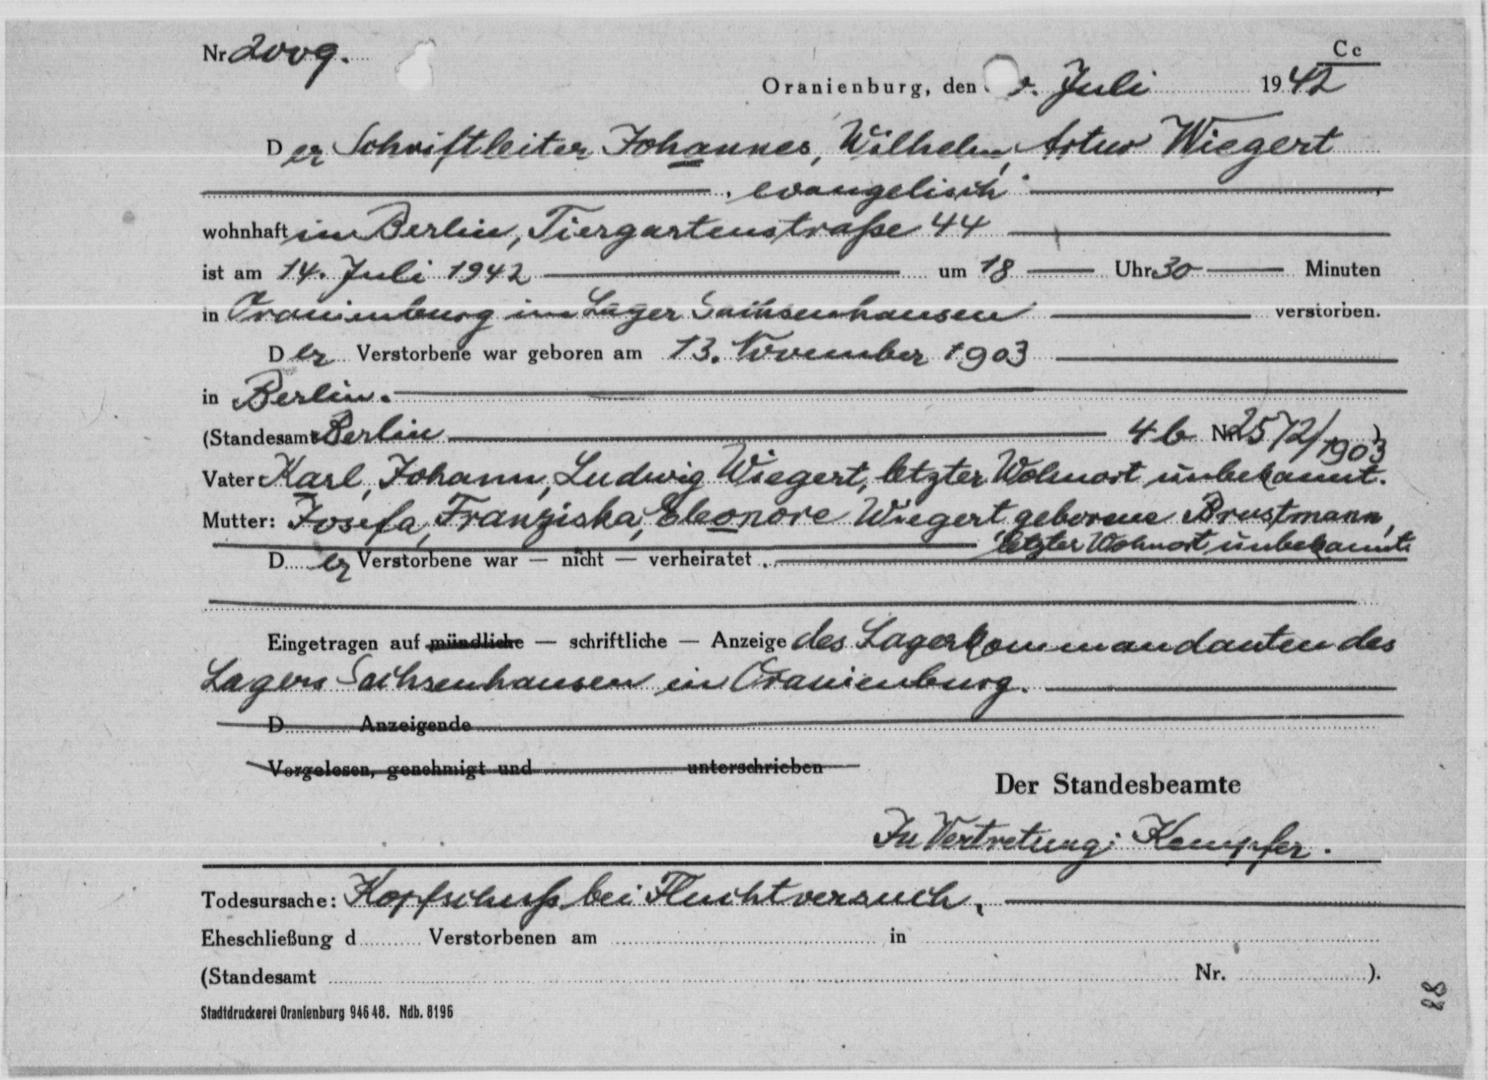 Nr 2009.
Cc
Oranienburg, den . Juli 1942
Der Schriftleiter Johannes, Wilhelm, Artur Wiegert
, evangelisch
wohnhaft in Berlin, Tiergartenstraße 44
ist am 14. Juli 1942 um 18 Uhr 30 Minuten
in Oranienburg im Lager Sachsenhausen verstorben.
Der Verstorbene war geboren am 13. November 1903
in Berlin.
(Standesamt Berlin 4b Nr 2572/1903)
Vater Karl, Johann, Ludwig Wiegert, letzter Wohnort unbekannt.
Mutter: Josefa, Franziska, Eleonore Wiegert geborene Brustmann,
letzter Wohnort unbekannt.
Der Verstorbene war — nicht — verheiratet.
Eingetragen auf mündliche — schriftliche — Anzeige des Lagerkommandanten des
Lagers Sachsenhausen in Oranienburg.
D Anzeigende
Vorgelesen, genehmigt und unterschrieben
Der Standesbeamte
In Vertretung: Kempfer.
Todesursache: Kopfschuß bei Fluchtversuch.
Eheschließung d Verstorbenen am in
(Standesamt Nr. ).
Stadtdruckerei Oranienburg 946 48. Ndb. 8196
88